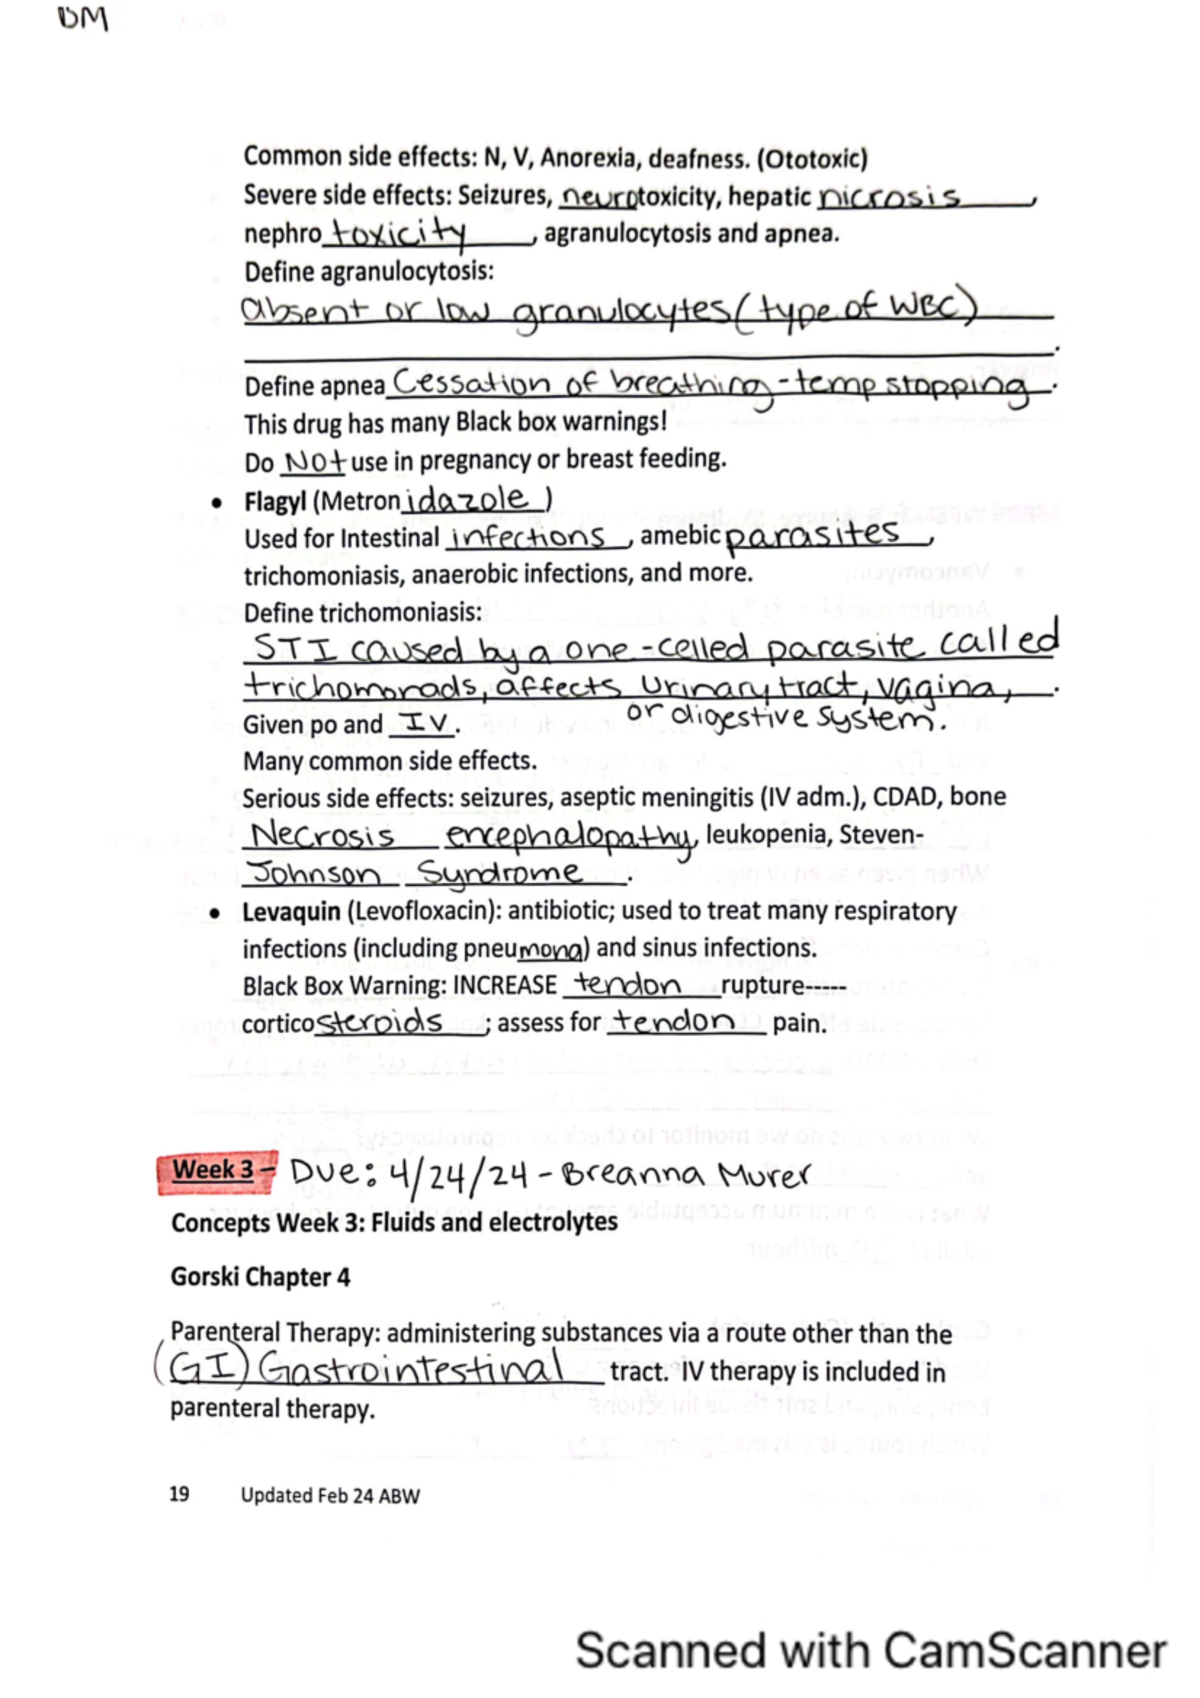 BM
Common side effects: N, V, Anorexia, deafness. (Ototoxic)
Severe side effects: Seizures, neurotoxicity, hepatic nicrosis,
nephro toxicity, agranulocytosis and apnea.
Define agranulocytosis:
absent or low granulocytes (type of WBC)
.
Define apnea Cessation of breathing - temp stopping.
This drug has many Black box warnings!
Do NOT use in pregnancy or breast feeding.
• Flagyl (Metronidazole)
Used for Intestinal infections, amebic parasites,
trichomoniasis, anaerobic infections, and more.
Define trichomoniasis:
STI caused by a one-celled parasite called
trichomonads, affects urinary tract, vagina,.
or digestive system.
Given po and IV.
Many common side effects.
Serious side effects: seizures, aseptic meningitis (IV adm.), CDAD, bone
Necrosis encephalopathy, leukopenia, Steven-
Johnson Syndrome.
• Levaquin (Levofloxacin): antibiotic; used to treat many respiratory
infections (including pneumona) and sinus infections.
Black Box Warning: INCREASE tendon rupture-----
corticosteroids; assess for tendon pain.
Week 3 - Due: 4/24/24 - Breanna Murer
Concepts Week 3: Fluids and electrolytes
Gorski Chapter 4
Parenteral Therapy: administering substances via a route other than the
(GI) Gastrointestinal tract. IV therapy is included in
parenteral therapy.
19 Updated Feb 24 ABW
Scanned with CamScanner